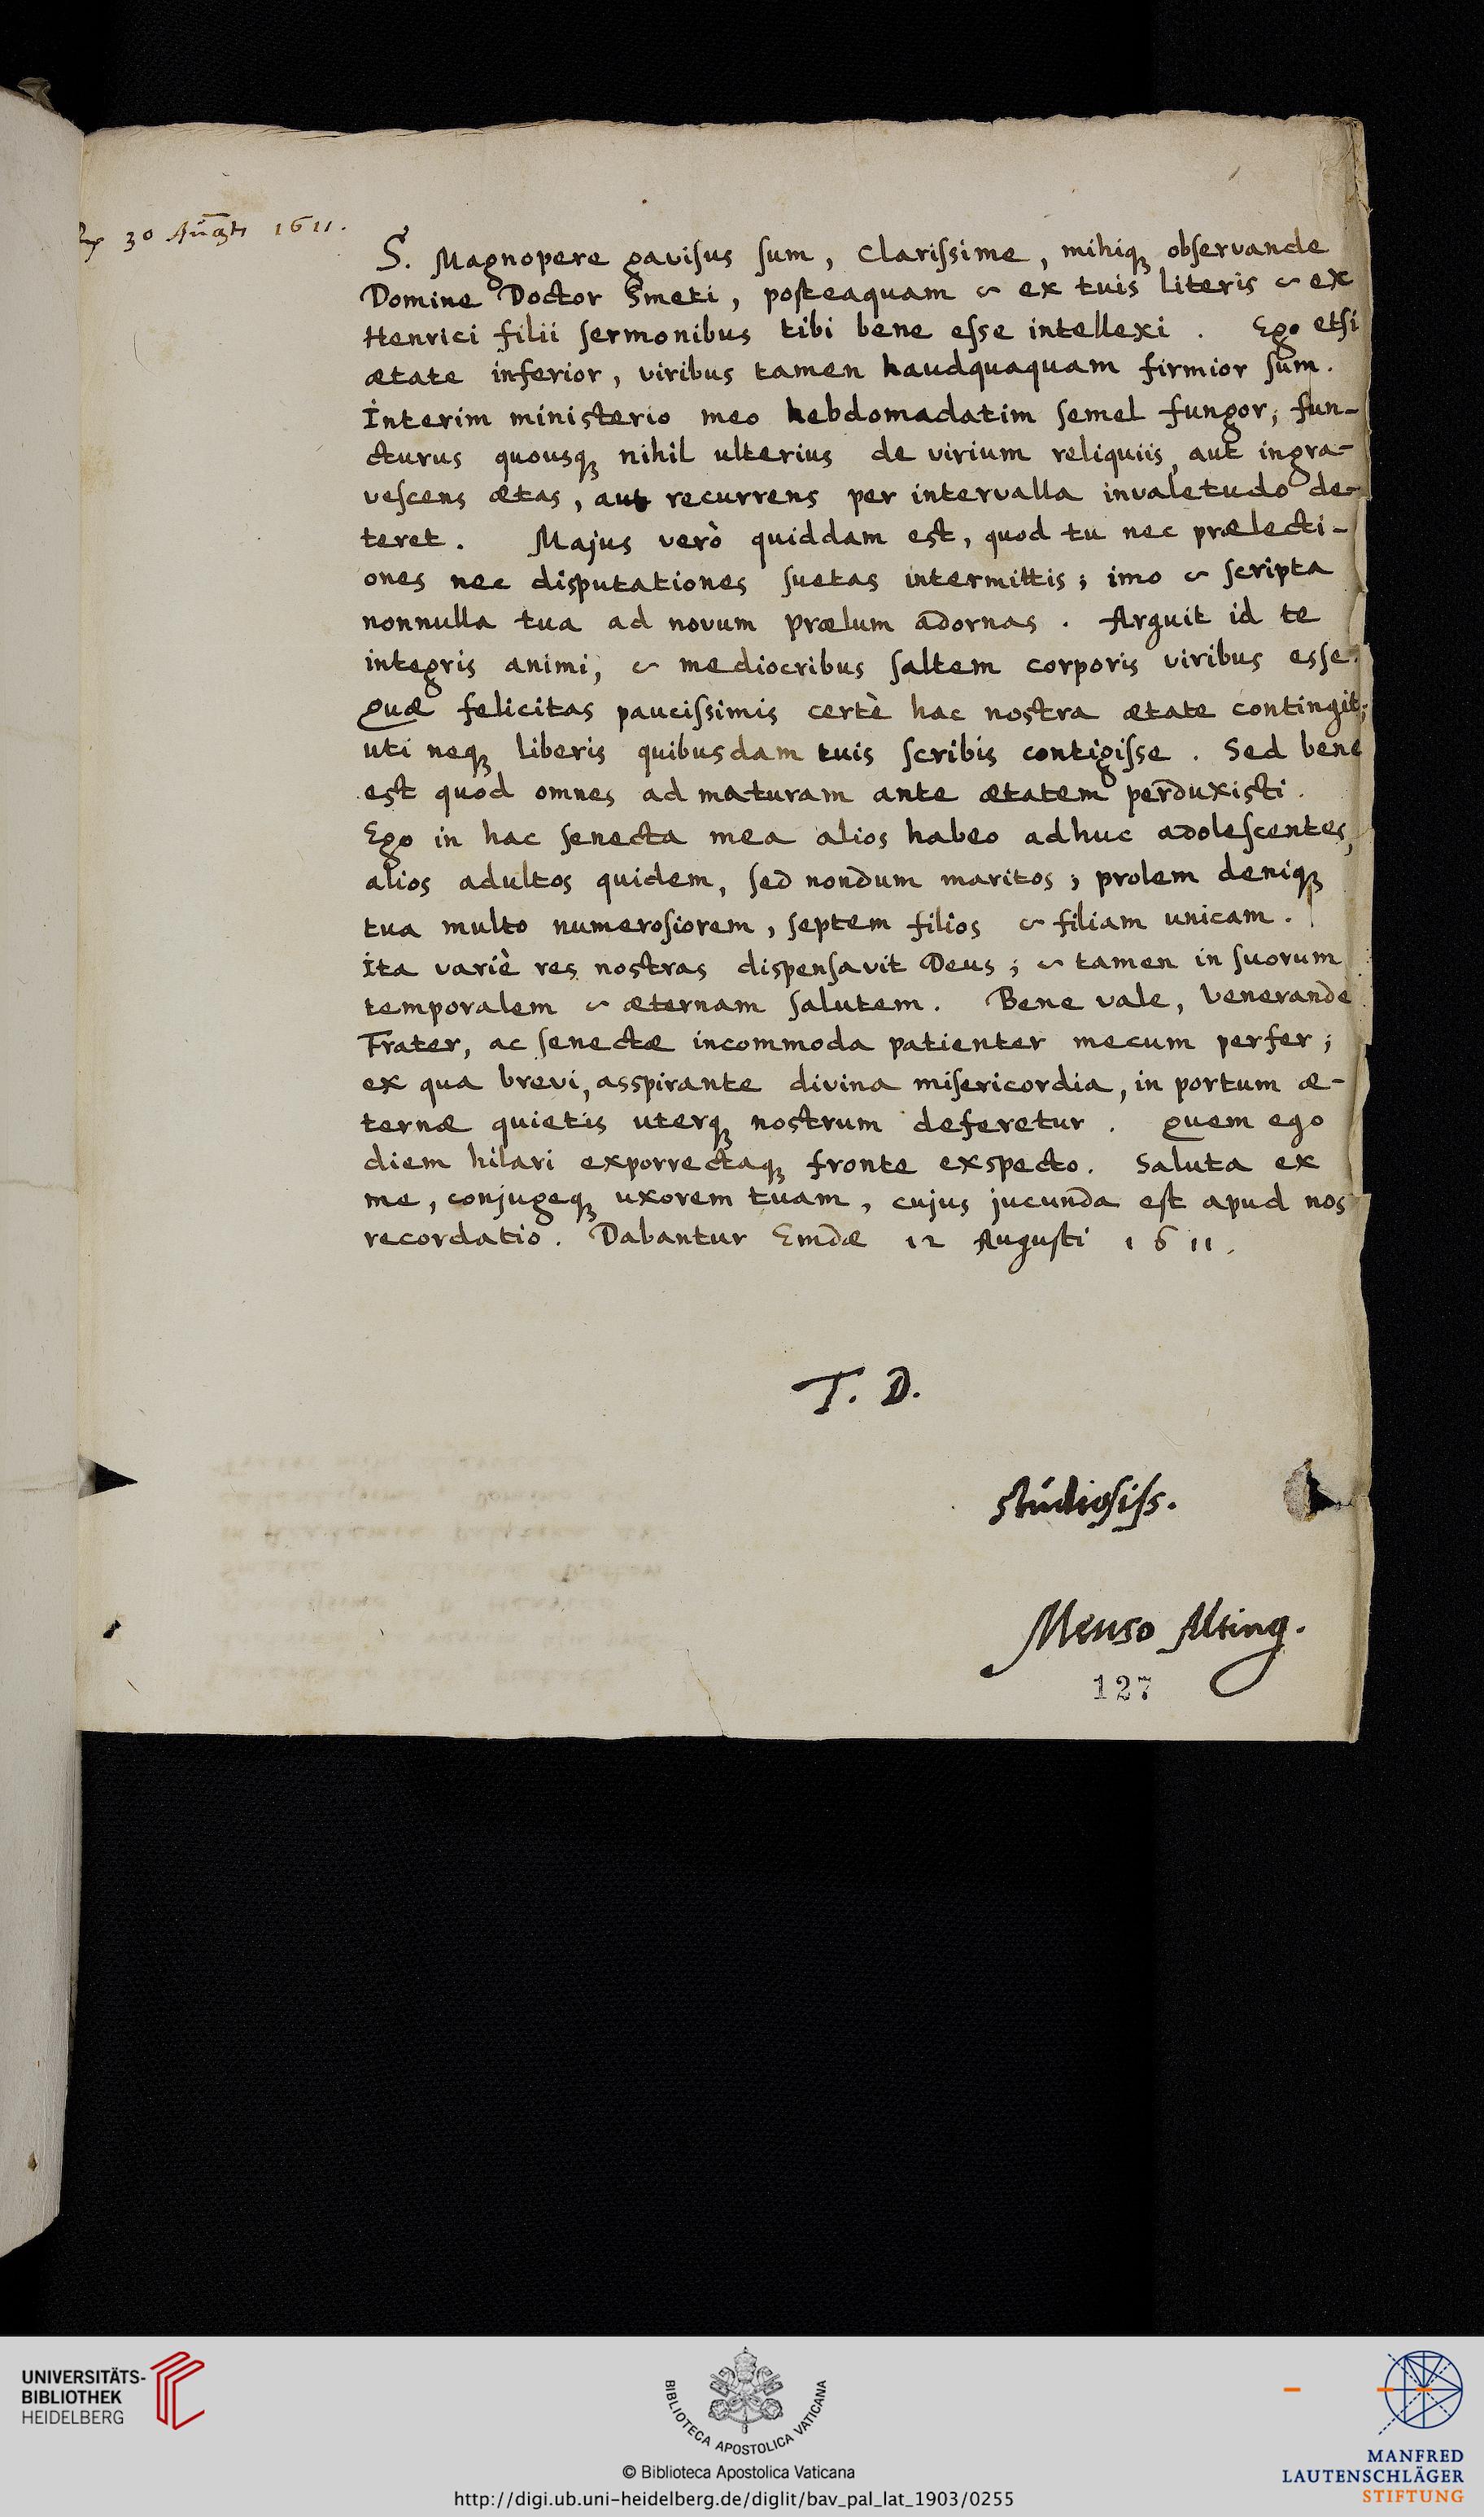 30 Augusti 1611.
S. Magnopere gavisus sum, clarissime, mihiq; observande
Domine Doctor Smeti, posteaquam & ex tuis literis & ex
Henrici filii sermonibus tibi bene esse intellexi. Ego etsi
ætate inferior, viribus tamen haudquaquam firmior sum.
Interim ministerio meo hebdomadatim semel fungor; fun-
cturus quousq; nihil ulterius de virium reliquiis, aut ingra-
vescens ætas, aut recurrens per intervalla invaletudo de-
teret. Majus verò quiddam est, quod tu nec prælecti-
ones nec disputationes suetas intermittis; imo & scripta
nonnulla tua ad novum prælum adornas. Arguit id te
integris animi, & mediocribus saltem corporis viribus esse.
Quæ felicitas paucissimis certè hac nostra ætate contingit;
uti neq; liberis quibusdam tuis scribis contigisse. Sed bene
est quod omnes ad maturam ante ætatem perduxisti.
Ego in hac senecta mea alios habeo adhuc adolescentes,
alios adultos quidem, sed nondum maritos; prolem deniq;
tua multo numerosiorem, septem filios & filiam unicam.
Ita variè res nostras dispensavit Deus; & tamen in suorum
temporalem & æternam salutem. Bene vale, Venerande
Frater, ac senectæ incommoda patienter mecum perfer;
ex qua brevi, asspirante divina misericordia, in portum æ-
ternæ quietis uterq; nostrum deferetur. Quem ego
diem hilari exporrectaq; fronte exspecto. Saluta ex
me, conjugeq; uxorem tuam, cujus jucunda est apud nos
recordatio. Dabantur Emdæ 12 Augusti 1611.
T. D.
studiosiss.
Menso Alting.
127
UNIVERSITÄTS-
BIBLIOTHEK
HEIDELBERG
BIBLIOTECA APOSTOLICA VATICANA
© Biblioteca Apostolica Vaticana
http://digi.ub.uni-heidelberg.de/diglit/bav_pal_lat_1903/0255
MANFRED
LAUTENSCHLÄGER
STIFTUNG